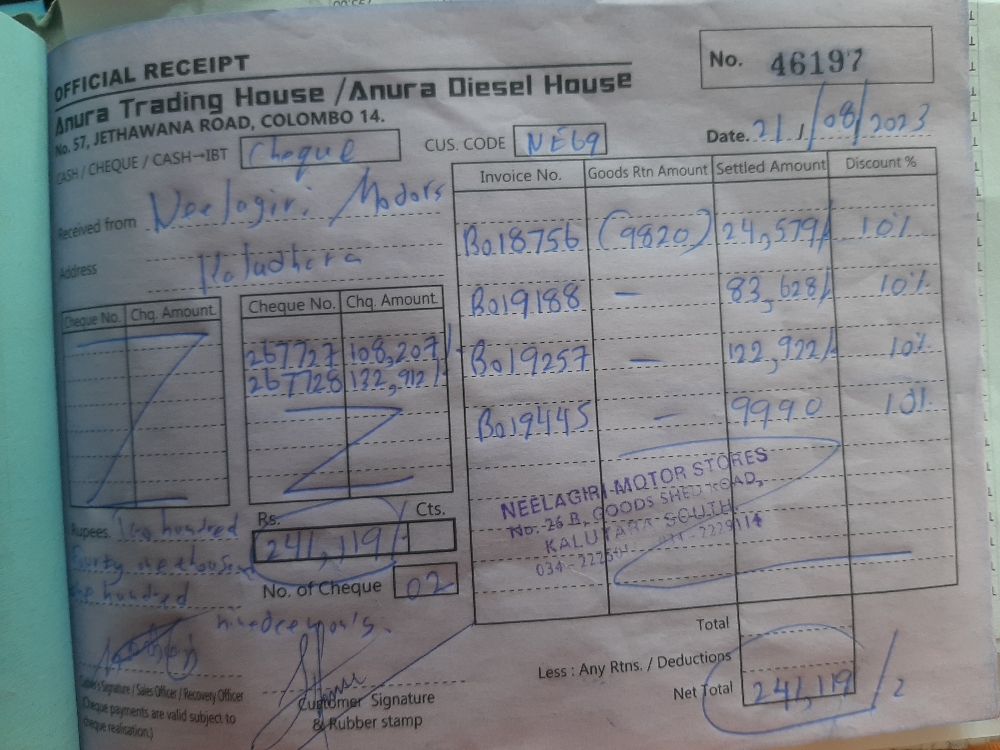 OFFICIAL RECEIPT
No. 46197
Anura Trading House / Anura Diesel House
No. 57, JETHAWANA ROAD, COLOMBO 14.
Date. 21 / 08 / 2023
CASH / CHEQUE / CASH→IBT Cheque
CUS. CODE NE69
Received from Neelagiri Motors
Address
Cheque No. Chq. Amount
Cheque No. Chq. Amount
267727 108,207/-
267728 132,912/-
Invoice No. Goods Rtn Amount Settled Amount Discount %
Bo18756 (9820) 24,579/- 10%
Bo19188 — 83,628/- 10%
Bo19257 — 122,922/- 10%
Bo19445 — 9990 10%
NEELAGIRI MOTOR STORES
No. 26 B, GOODS SHED ROAD,
KALUTARA SOUTH
034 - 2229114
Rupees. Two hundred
Fourty one thousand
one hundred
nineteen only.
Rs. Cts.
241,119/-
No. of Cheque 02
Signature / Sales Officer / Recovery Officer
Cheque payments are valid subject to
cheque realisation.)
Customer Signature
& Rubber stamp
Total
Less : Any Rtns. / Deductions
Net Total 241,119/2